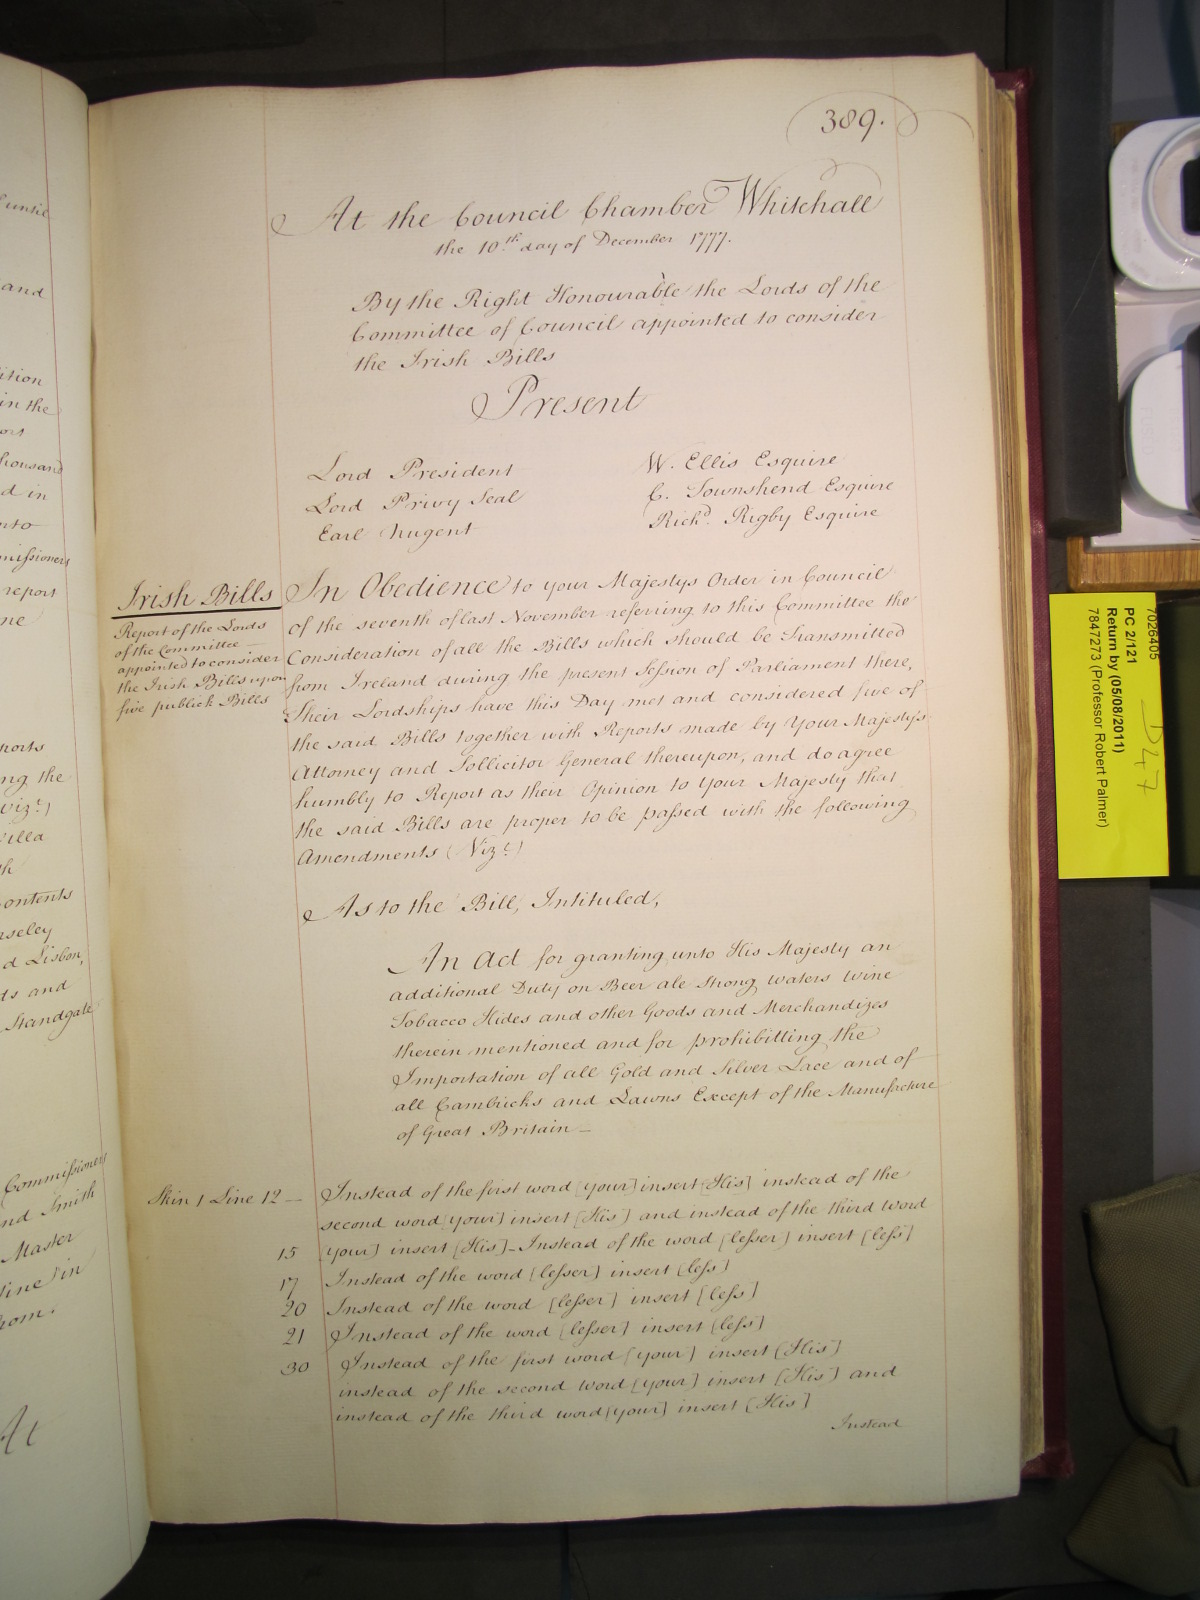 389.
At the Council Chamber Whitehall
the 10.th day of December 1777.
By the Right Honourable the Lords of the
Committee of Council appointed to consider
the Irish Bills
Present
Lord President
Lord Privy Seal
Earl Nugent
W. Ellis Esquire
C. Townshend Esquire
Richd. Rigby Esquire
Irish Bills
Report of the Lords
of the Committee
appointed to consider
the Irish Bills upon
five publick Bills
In Obedience to your Majestys Order in Council
of the seventh of last November referring to this Committee the
Consideration of all the Bills which should be Transmitted
from Ireland during the present Session of Parliament there,
Their Lordships have this Day met and considered five of
the said Bills together with Reports made by Your Majesty's
Attorney and Sollicitor General thereupon, and do agree
humbly to Report as their Opinion to Your Majesty that
the said Bills are proper to be passed with the following
Amendments (Vizt.)
As to the Bill, Intituled,
An Act for granting unto His Majesty an
additional Duty on Beer ale Strong Waters Wine
Tobacco Hides and other Goods and Merchandizes
therein mentioned and for prohibitting the
Importation of all Gold and Silver Lace and of
all Cambricks and Lawns Except of the Manufacture
of Great Britain—
Skin 1 Line 12 — Instead of the first word [your] insert [His] instead of the
second word [your] insert [His] and instead of the third word
[your] insert [His]—Instead of the word [lesser] insert [less]
15
17 Instead of the word [lesser] insert [less]
20 Instead of the word [lesser] insert [less]
21 Instead of the word [lesser] insert [less]
30 Instead of the first word [your] insert [His]
instead of the second word [your] insert [His] and
instead of the third word [your] insert [His]
Instead
until
and
ition
in the
housand
d in
nto
missioners
report
ports
ng the
vizt.)
villa
ontents
d Lisbon,
ds and
Standgate
Commissioners
nd Smith
Master
in
from.
At
7026405
PC 2/121
Return by (05/08/2011)
7847273 (Professor Robert Palmer)
D47